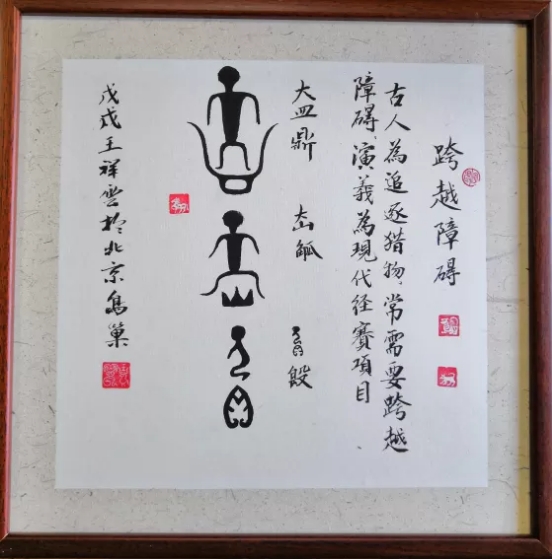 跨越障碍
古人為追逐猎物,常需要跨越
障碍,演義為現代径賽項目
大皿鼎
觚
戊戌王祥雲於北京鳥巢